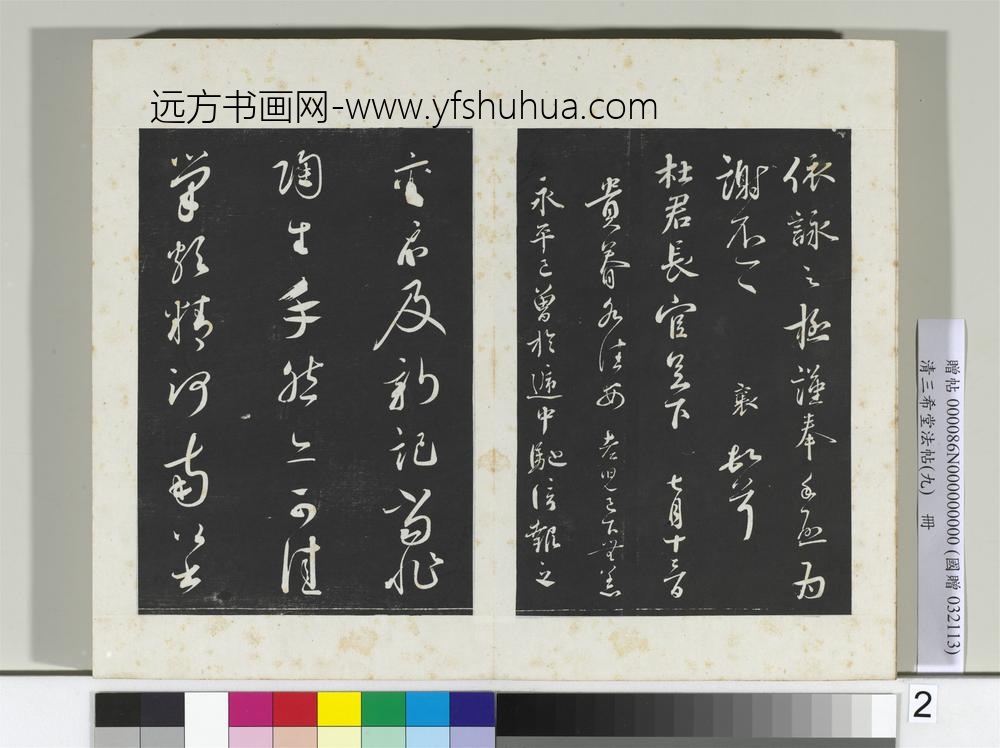 远方书画网-www.yfshuhua.com
依詠之極謹奉手啟為
謝不一一 襄頓首
杜君長官足下 七月十三日
貴眷各佳安 老兒已下無恙
永平已曾於遞中馳信報之
及新記當非
陶生手然亦可佳
筆頗精
贈帖 000086N000000000 (國贈 032113)
清三希堂法帖(九) 冊
2